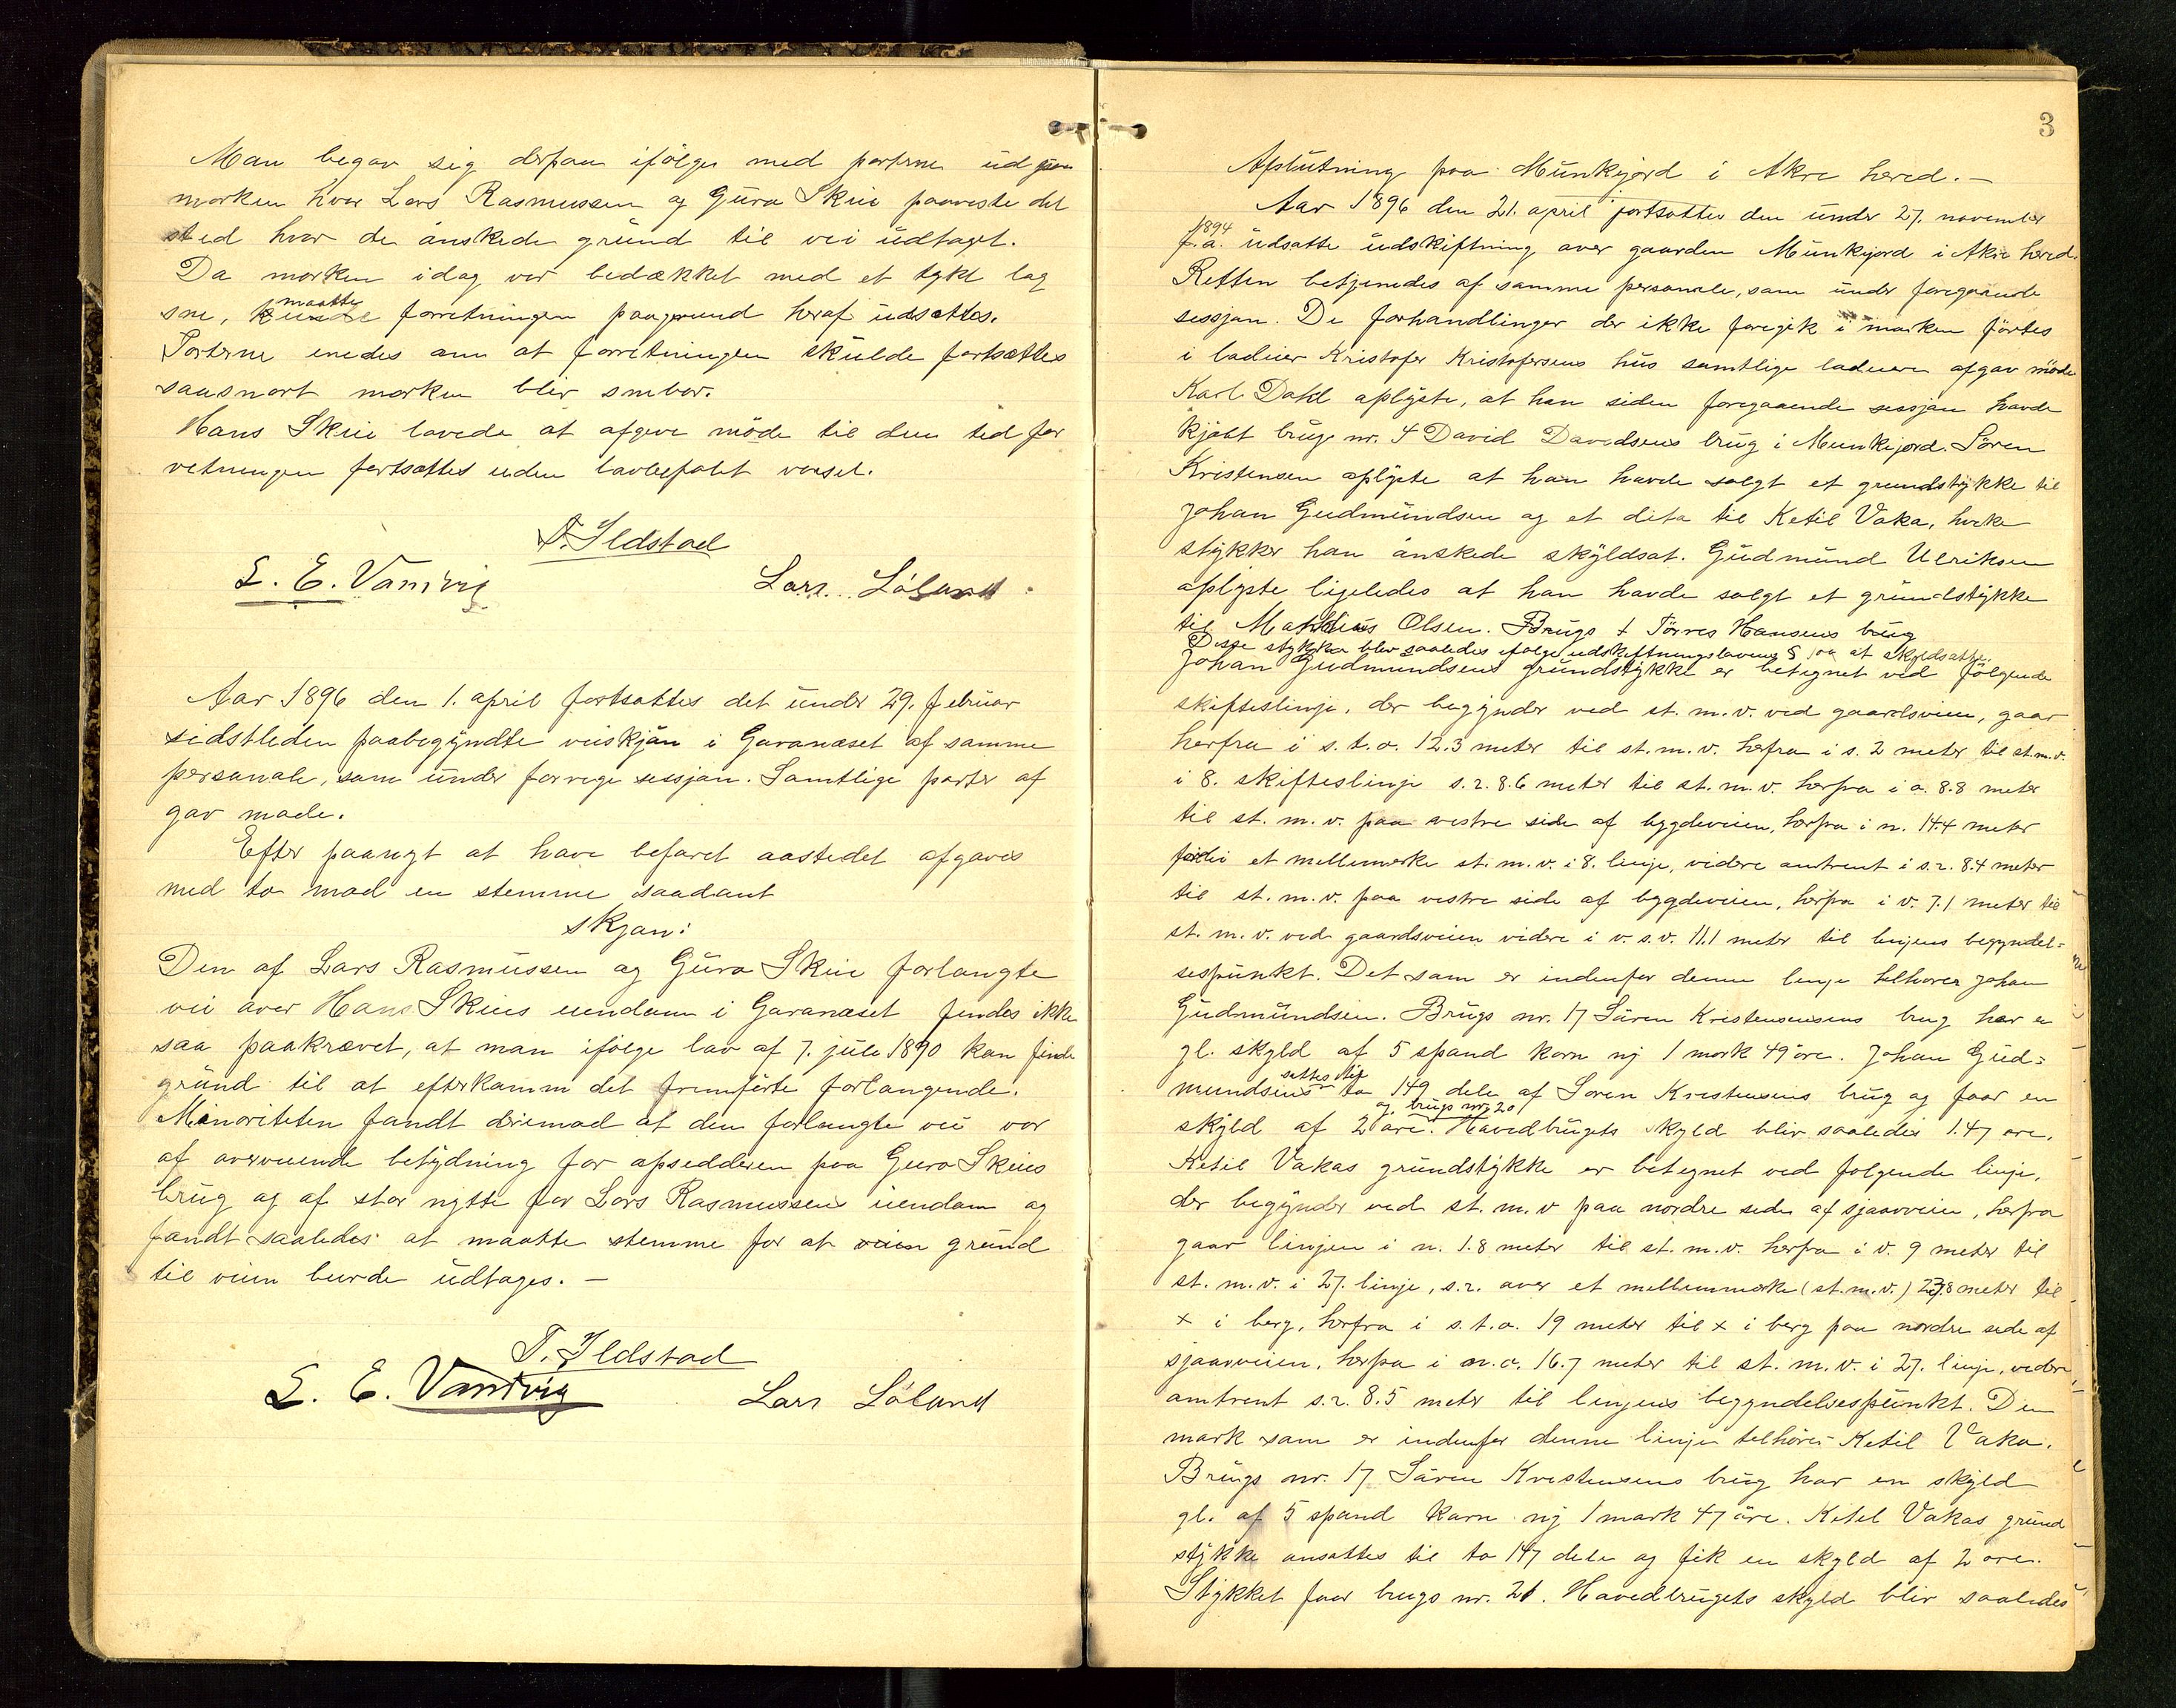 Man begav sig derpaa ifölge med parterne ud paa
marken hvor Lars Rasmussen og Guro Skeie paaviste det
sted hvor de önskede grund til vei udtaget.
Da marken idag var bedækket med et tykt lag
sne, maatte forretningen paagrund heraf udsættes.
Parterne enedes om at forretningen skulde fortsættes
saasnart marken blir snebar.
Hans Skeie lovede at afgive möde til den tid for
retningen fortsættes uden lovbefalt varsel.
T. Ildstad
L. E. Vandvig Lars Löland.
Aar 1896 den 1. april fortsattes det under 29. februar
sidstleden paabegyndte veiskjön i Garanæset af samme
personale, som under forrige sessjon. Samtlige parter af
gav møde.
Efter paanyt at have befaret aastedet afgaves
med to mod en stemme saadant
skjøn:
Den af Lars Rasmussen og Guro Skeie forlangte
vei over Hans Skeies eiendom i Garanæset findes ikke
saa paakrævet, at man ifølge lov af 7. juli 1890 kan finde
grund til at efterkomme det fremførte forlangende.
Minoriteten fandt derimod at den forlangte vei var
af overveiende betydning for opsidderen paa Guro Skeies
brug og af stor nytte for Lars Rasmussens eiendom og
fandt saaledes at maatte stemme for at veien grund
til veien burde udtages. —
T. Ildstad
L. E. Vandvig Lars Löland
3
Afslutning paa Munkejord i Akre hered. —
Aar 1896 den 21. april fortsattes den under 27. november
1894
f.a. udsatte udskiftning over gaarden Munkejord i Akre hered.
Retten betjenedes af samme personale, som under foregaaende
sessjon. De forhandlinger der ikke foregik i marken förtes
i lodeier Kristofer Kristofersens hus samtlige lodeiere afgav möde
Karl Dahl oplyste, at han siden foregaaende sessjon havde
kjöbt brugs nr. 4 David Davidsens brug i Munkejord. Sören
Kristensen oplyste at han havde solgt et grundstykke til
Johan Gudmundsen og et dito til Ketil Vaka, hvilke
stykker han önskede skyldsat. Gudmund Ulriksen
oplyste ligeledes at han havde solgt et grundstykke
til Mathias Olsen. Brugs Törres Hansens brug
Disse stykker blev saaledes ifølge udskiftningslovens § at skyldsætte.
Johan Gudmundsens grundstykke er betegnet ved fölgende
skifteslinje, der begynder ved st. m. v. ved gaardsveien, gaar
herfra i s. t. o. 12.3 meter til st. m. v. herfra i s. 2 meter til st. m. v.
i 8. skifteslinje s. r. 8.6 meter til st. m. v. herfra i o. 8.8 meter
til st. m. v. paa vestre side af bygdeveien, herfra i n. 14.4 meter
forbi et mellemmerke st. m. v. i 8. linje, videre omtrent i s. r. 8.4 meter
til st. m. v. paa vestre side af bygdeveien, herfra i v. 7.1 meter til
st. m. v. ved gaardsveien videre i v. s. v. 11.1 meter til linjens begyndel-
sespunkt. Det som er indenfor denne linje tilhører Johan
Gudmundsen. Brugs nr. 17 Sören Kristensens brug har en
gl. skyld af 5 spand korn ny 1 mark 49 öre. Johan Gud-
mundsens sættes til to 149 dele af Sören Kristensens brug og faar en
skyld af 2 öre og brugs nr. 20. Hovedbrugets skyld blir saaledes 1.47 öre.
Ketil Vakas grundstykke er betegnet ved folgende linje,
der begynder ved st. m. v paa nordre side af sjøaveien, herfra
gaar linjen i n. 1.8 meter til st. m. v. herfra i v. 9 meter til
st. m. v. i 27. linje, s. r. over et mellemmerke (st. m. v.) meter til
x i berg, herfra i s. t. o. 19 meter til x i berg paa nordre side af
sjøaveien, herfra i n. o. 16.7 meter til st. m. v. i 27. linje, videre
omtrent s. r. 8.5 meter til linjens begyndelsespunkt. Den
mark som er indenfor denne linje tilhörer Ketil Vaka.
Brugs nr. 17 Sören Kristensens brug har en skyld
gl. af 5 spand korn ny 1 mark 47 öre. Ketil Vakas grund
stykke ansattes til to 147 dele og fik en skyld af 2 øre.
Stykket faar brugs nr. 21. Hovedbrugets skyld blir saaledes